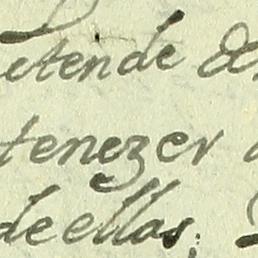 etende
tenezer
de ellas;